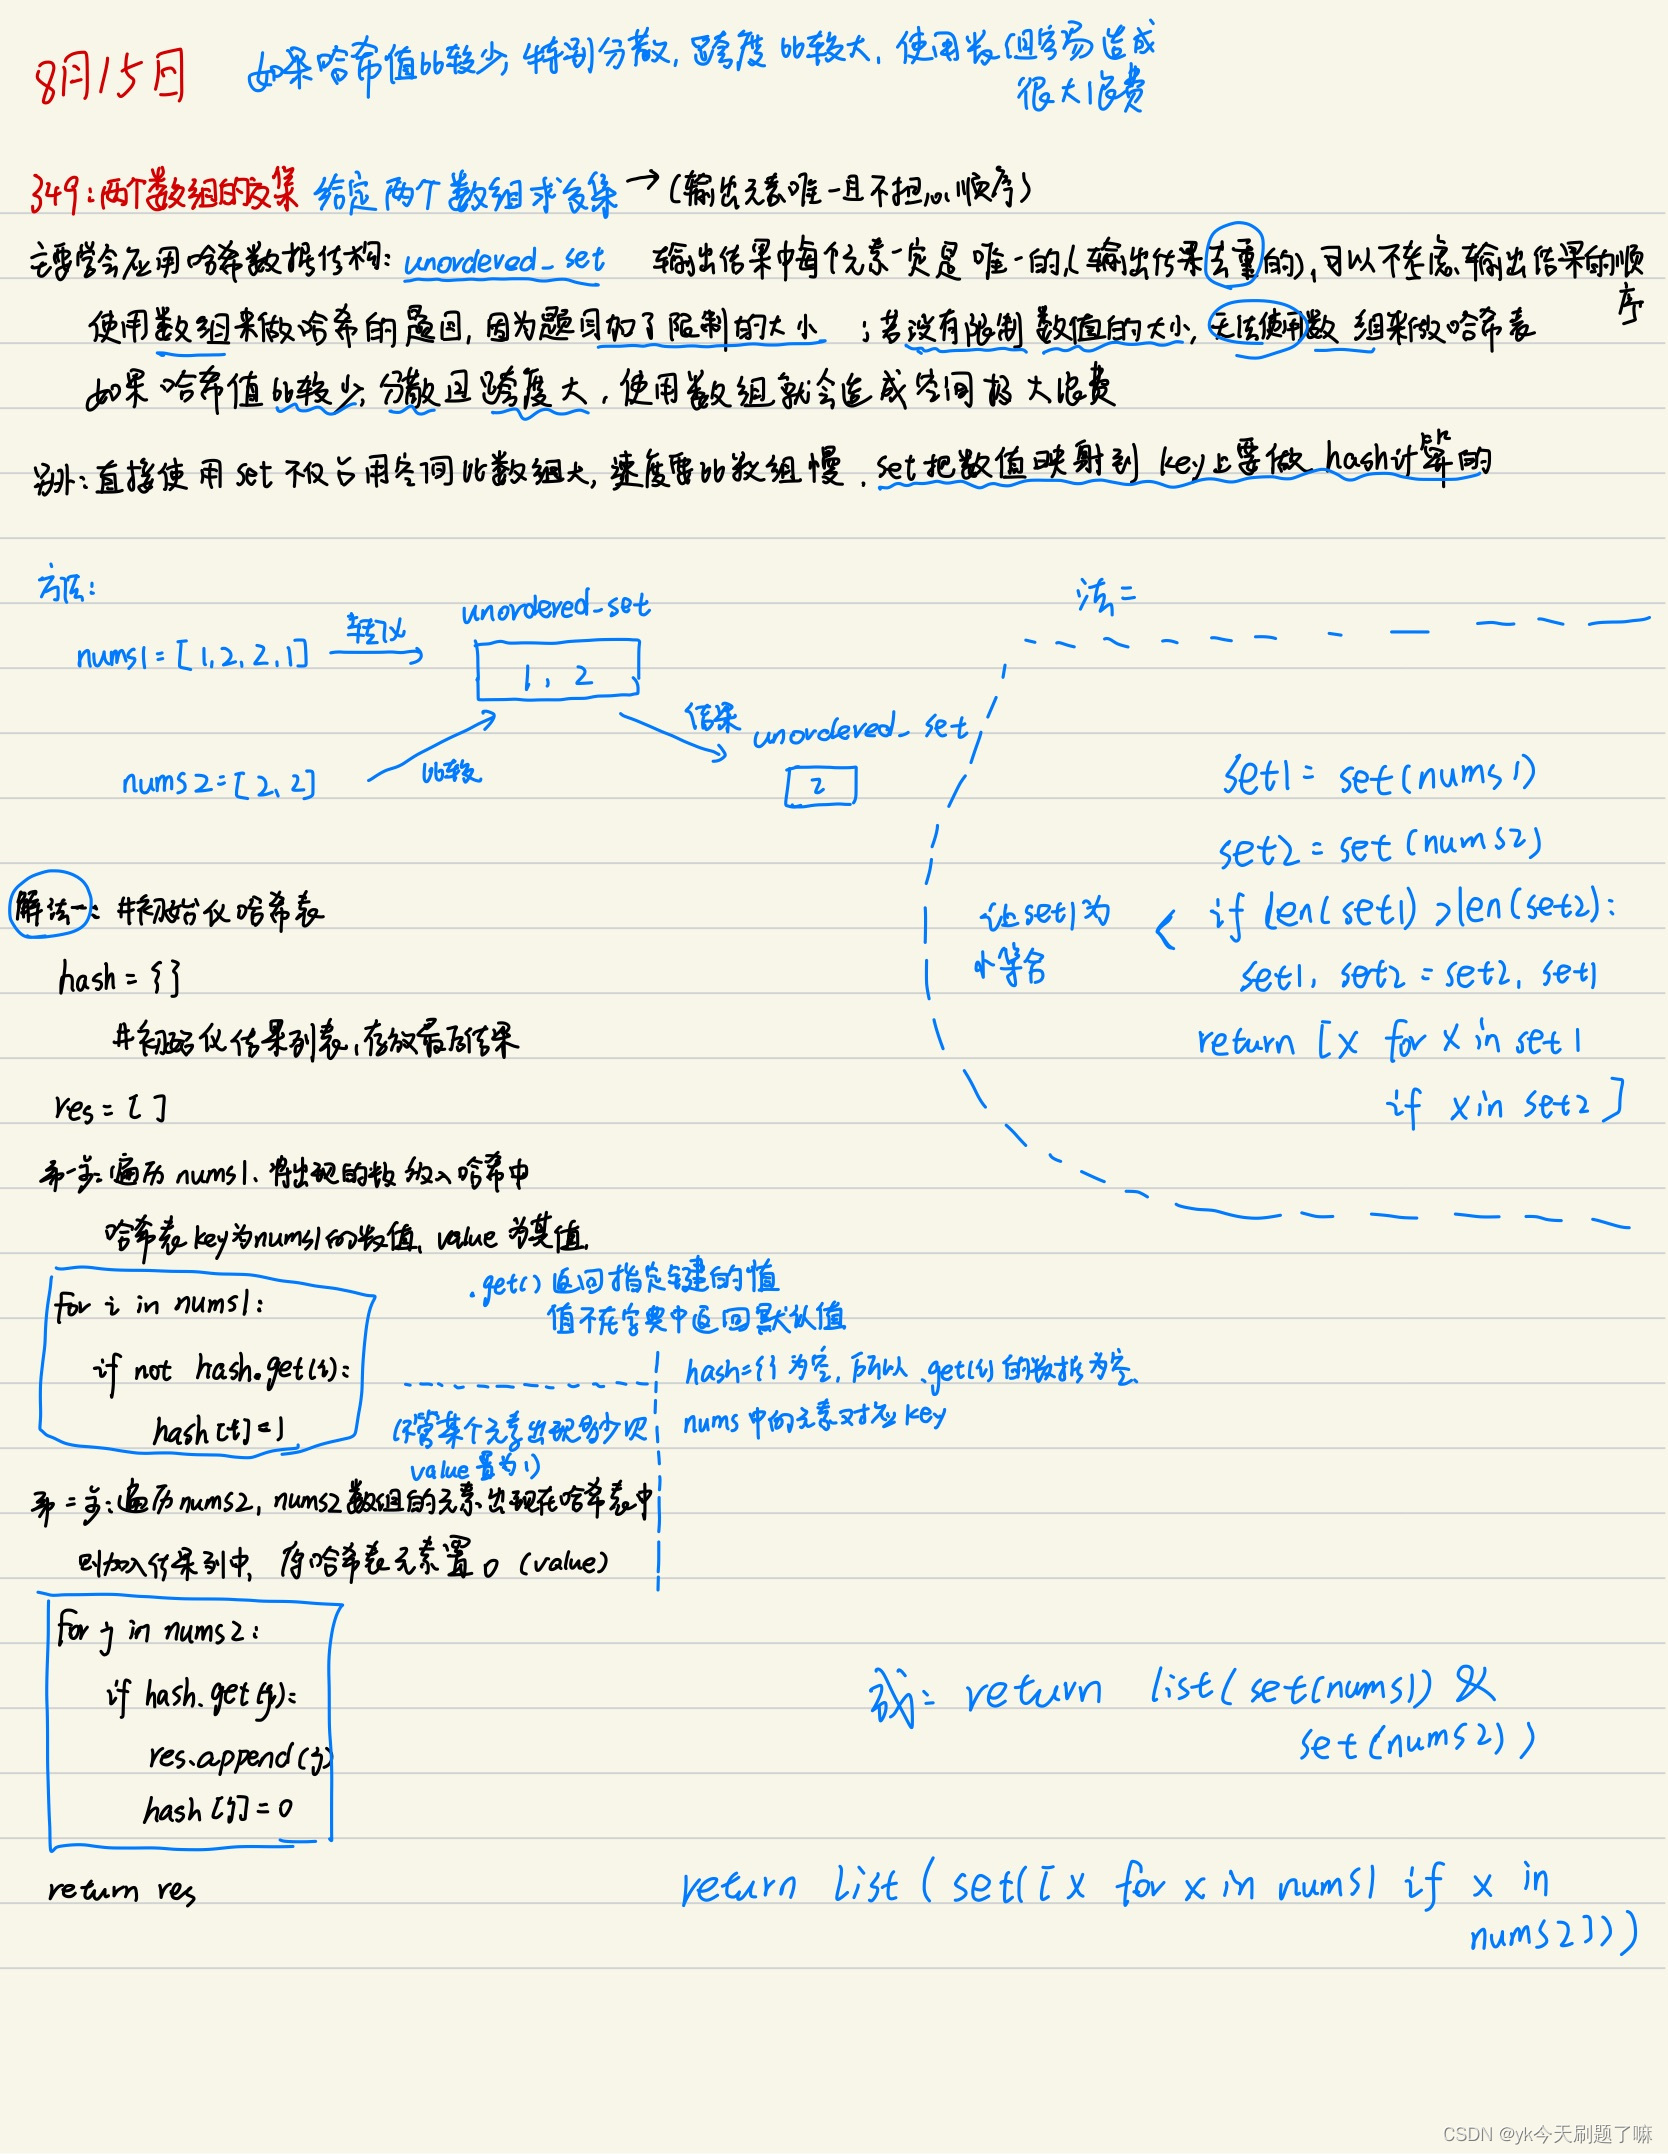 8月15日
如果哈希值比较少,特别分散,跨度比较大,使用数组容易造成
很大浪费
349:两个数组的交集 给定两个数组求交集 → (输出元素唯一且不担心顺序)
主要学会应用哈希数据结构: unordered_set 输出结果中每个元素一定是唯一的,(输出结果去重的),可以不考虑输出结果的顺
序
使用数组来做哈希的题目,因为题目加了限制的大小 ;若没有限制数值的大小,无法使用数组来做哈希表
如果哈希值比较少,分散且跨度大,使用数组就会造成空间极大浪费
另外:直接使用set不仅占用空间比数组大,速度要比数组慢.set把数值映射到key上要做hash计算的
方法:
nums1=[1,2,2,1] 转以 unordered_set
1, 2
nums2=[2,2] 比较 结果 unordered_set
2
法二
set1= set(nums1)
set2=set(nums2)
让set1为 < if len(set1)>len(set2):
小集合
set1, set2=set2, set1
return [x for x in set1
if x in set2]
解法一: #初始化哈希表
hash={}
#初始化结果列表,存放最后结果
res=[]
第一步:遍历nums1、将出现的数放入哈希中
哈希表key为nums1的数值,value为其值.
for i in nums1:
if not hash.get(i):
hash[i]=1
.get()返回指定键的值
值不在字典中返回默认值
(不管某个元素出现多少次
value置为1)
hash={}为空,所以.get(i)的数据为空
nums中的元素对应key
第二步:遍历nums2,nums2数组的元素出现在哈希表中
则加入结果列中, 存哈希表元素置0 (value)
for j in nums2:
if hash.get(j):
res.append(j)
hash[j]=0
return res
或: return list(set(nums1) &
set(nums2))
return list(set([x for x in nums1 if x in
nums2]))
CSDN @yk今天刷题了嘛